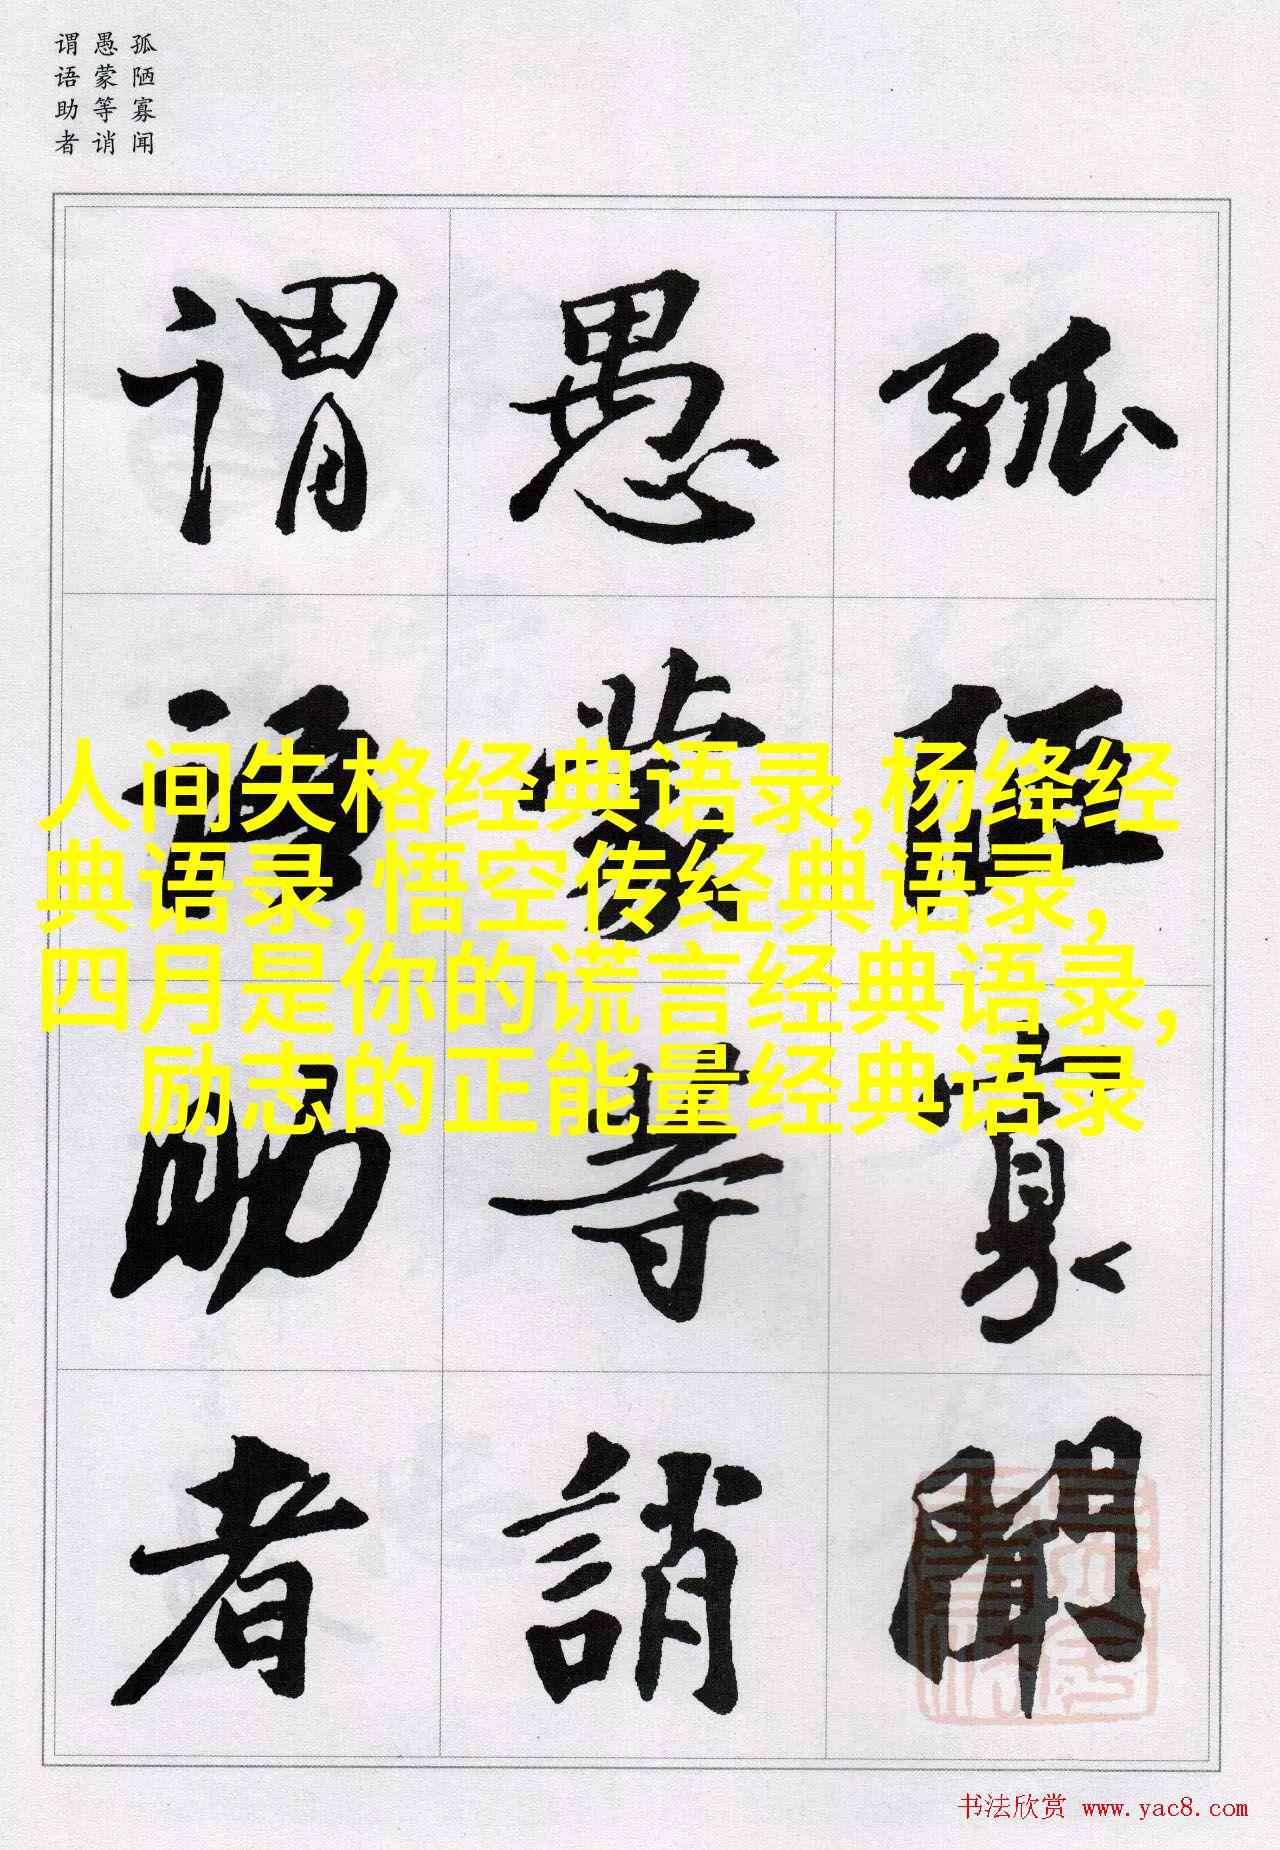 孤陋寡闻
愚蒙等诮
谓语助者
孤陋寡聞
愚蒙等誚
謂語助者
人间失格经典语录,杨绛经
典语录,悟空传经典语录,
四月是你的谎言经典语录,
励志的正能量经典语录
书法欣赏 www.yac8.com